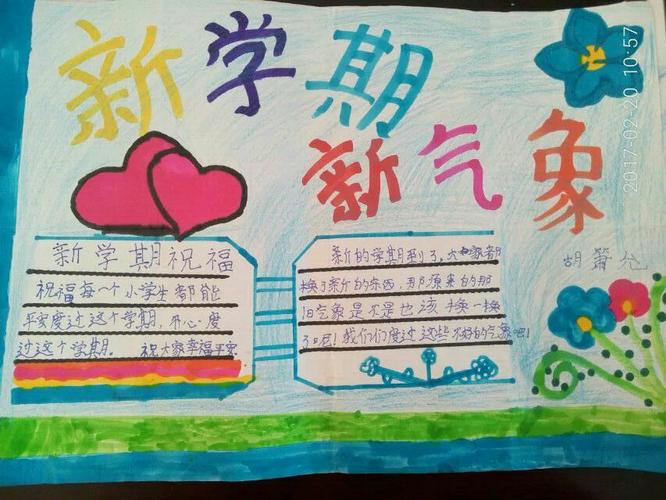 新学期
新气象
2017-02-20 10:57
胡
新学期祝福
祝福每一个小学生都能
平安度过这个学期，开心度
过这个学期。 祝大家幸福平安
新的学期到了，大家都
换了新的东西，那原来的那
旧气象是不是也该换一换
了呢！我们们度过这些不好的气象吧！